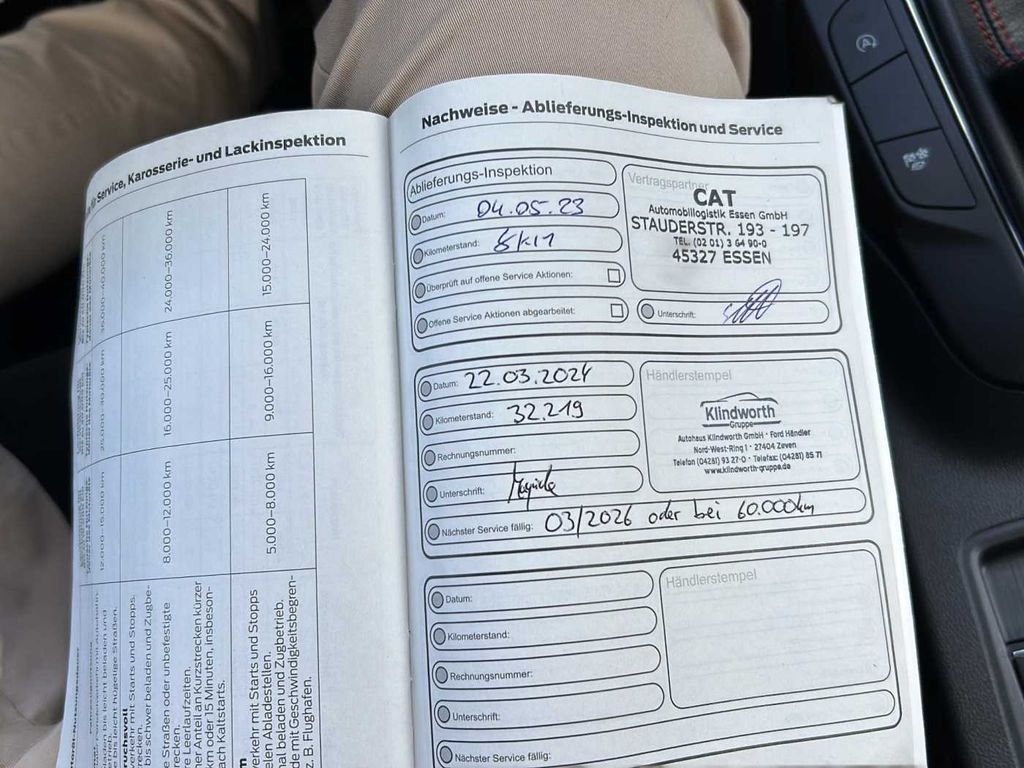 für Service, Karosserie- und Lackinspektion
36.000–40.000 km
24.000–36.000 km
15.000–24.000 km
16.000–25.000 km
9.000–16.000 km
12.000–16.000 km
8.000–12.000 km
5.000–8.000 km
bis leicht hügelige Straßen.
verkehr mit Starts und Stopps.
bis schwer beladen und Zugbe-
Straßen oder unbefestigte
Leerlaufzeiten.
Anteil an Kurzstrecken kürzer
km oder 15 Minuten, insbeson-
ach Kaltstarts.
verkehr mit Starts und Stopps
Abladestellen.
beladen und Zugbetrieb.
de mit Geschwindigkeitsbegren-
z. B. Flughäfen.
Nachweise - Ablieferungs-Inspektion und Service
Ablieferungs-Inspektion
Datum: 04.05.23
Kilometerstand:
Überprüft auf offene Service Aktionen:
Offene Service Aktionen abgearbeitet:
Vertragspartner
CAT
Automobillogistik Essen GmbH
STAUDERSTR. 193 - 197
TEL. (02 01) 3 64 90-0
45327 ESSEN
Unterschrift:
Datum: 22.03.2024
Kilometerstand: 32.219
Rechnungsnummer:
Unterschrift:
Nächster Service fällig: 03/2026 oder bei 60.000km
Händlerstempel
Klindworth
Gruppe
Autohaus Klindworth GmbH · Ford Händler
Nord-West-Ring 1 · 27404 Zeven
Telefon (04281) 93 27-0 · Telefax: (04281) 85 71
www.klindworth-gruppe.de
Datum:
Kilometerstand:
Rechnungsnummer:
Unterschrift:
Nächster Service fällig:
Händlerstempel